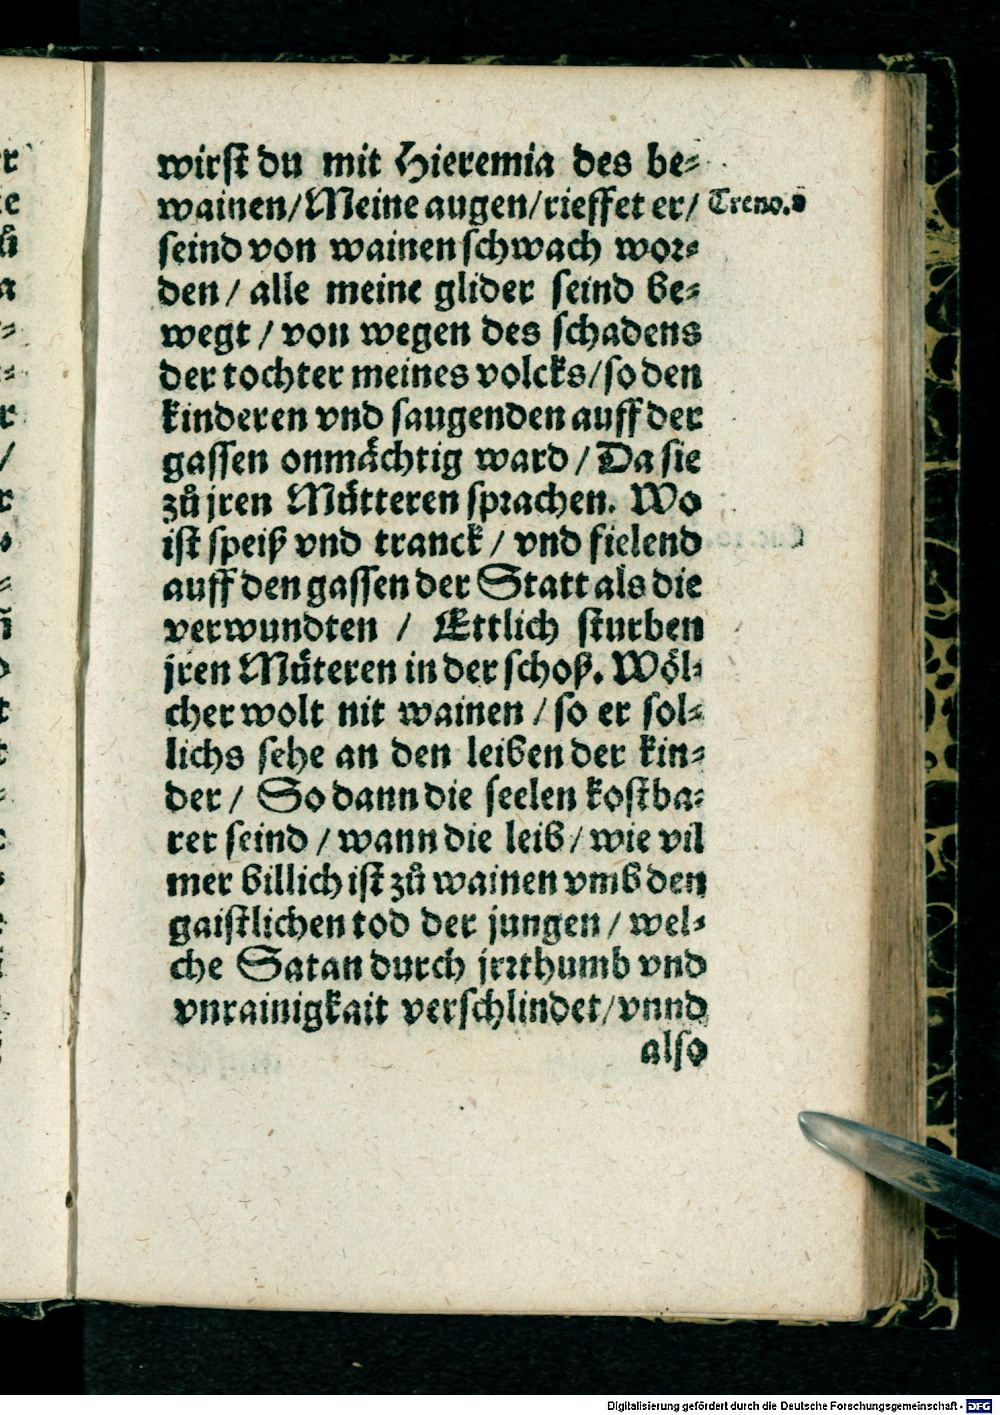 wirst du mit Hieremia des be⸗
wainen/Meine augen/rieffet er/ Treno.
seind von wainen schwach wor⸗
den / alle meine glider seind be⸗
wegt / von wegen des schadens
der tochter meines volcks/so den
kinderen vnd saugenden auff der
gassen onmaͤchtig ward / Da sie
zuͦ jren Muͤtteren sprachen. Wo
ist speiß vnd tranck / vnd fielend
auff den gassen der Statt als die
verwundten / Ettlich sturben
jren Muͤteren in der schoß. Woͤl⸗
cher wolt nit wainen / so er sol⸗
lichs sehe an den leiben der kin⸗
der / So dann die seelen kostba⸗
rer seind / wann die leib / wie vil
mer billich ist zuͦ wainen vmb den
gaistlichen tod der jungen / wel⸗
che Satan durch jrrthumb vnd
vnrainigkait verschlindet/vnnd
also
Digitalisierung gefördert durch die Deutsche Forschungsgemeinschaft - DFG